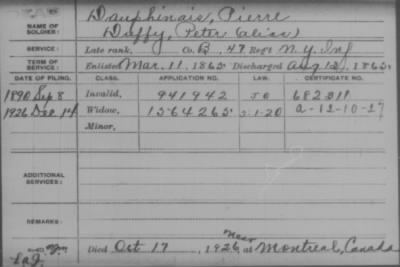 Dauphinais, Pierre
NAME OF SOLDIER: Duffy, Peter (alias)
SERVICE: Late rank, Co. B, 47 Reg't N.Y. Inf
TERM OF SERVICE: Enlisted Mar. 11, 1865 Discharged Aug 12, 1865
DATE OF FILING. CLASS. APPLICATION NO. LAW. CERTIFICATE NO.
1890 Sep 8 Invalid, 941942 682311
1926 Dec 14 Widow, 1564265 5-1-20 a-12-10-27
Minor,
ADDITIONAL SERVICES:
REMARKS:
Died Oct 17, 1926 near at Montreal, Canada